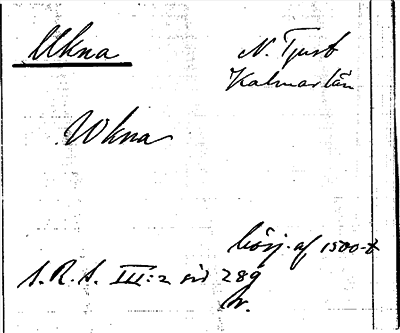 Ukna
N. Tjust
Kalmar län
Wkna
börj. af 1500-t
S.R.S. III:2 sid 289